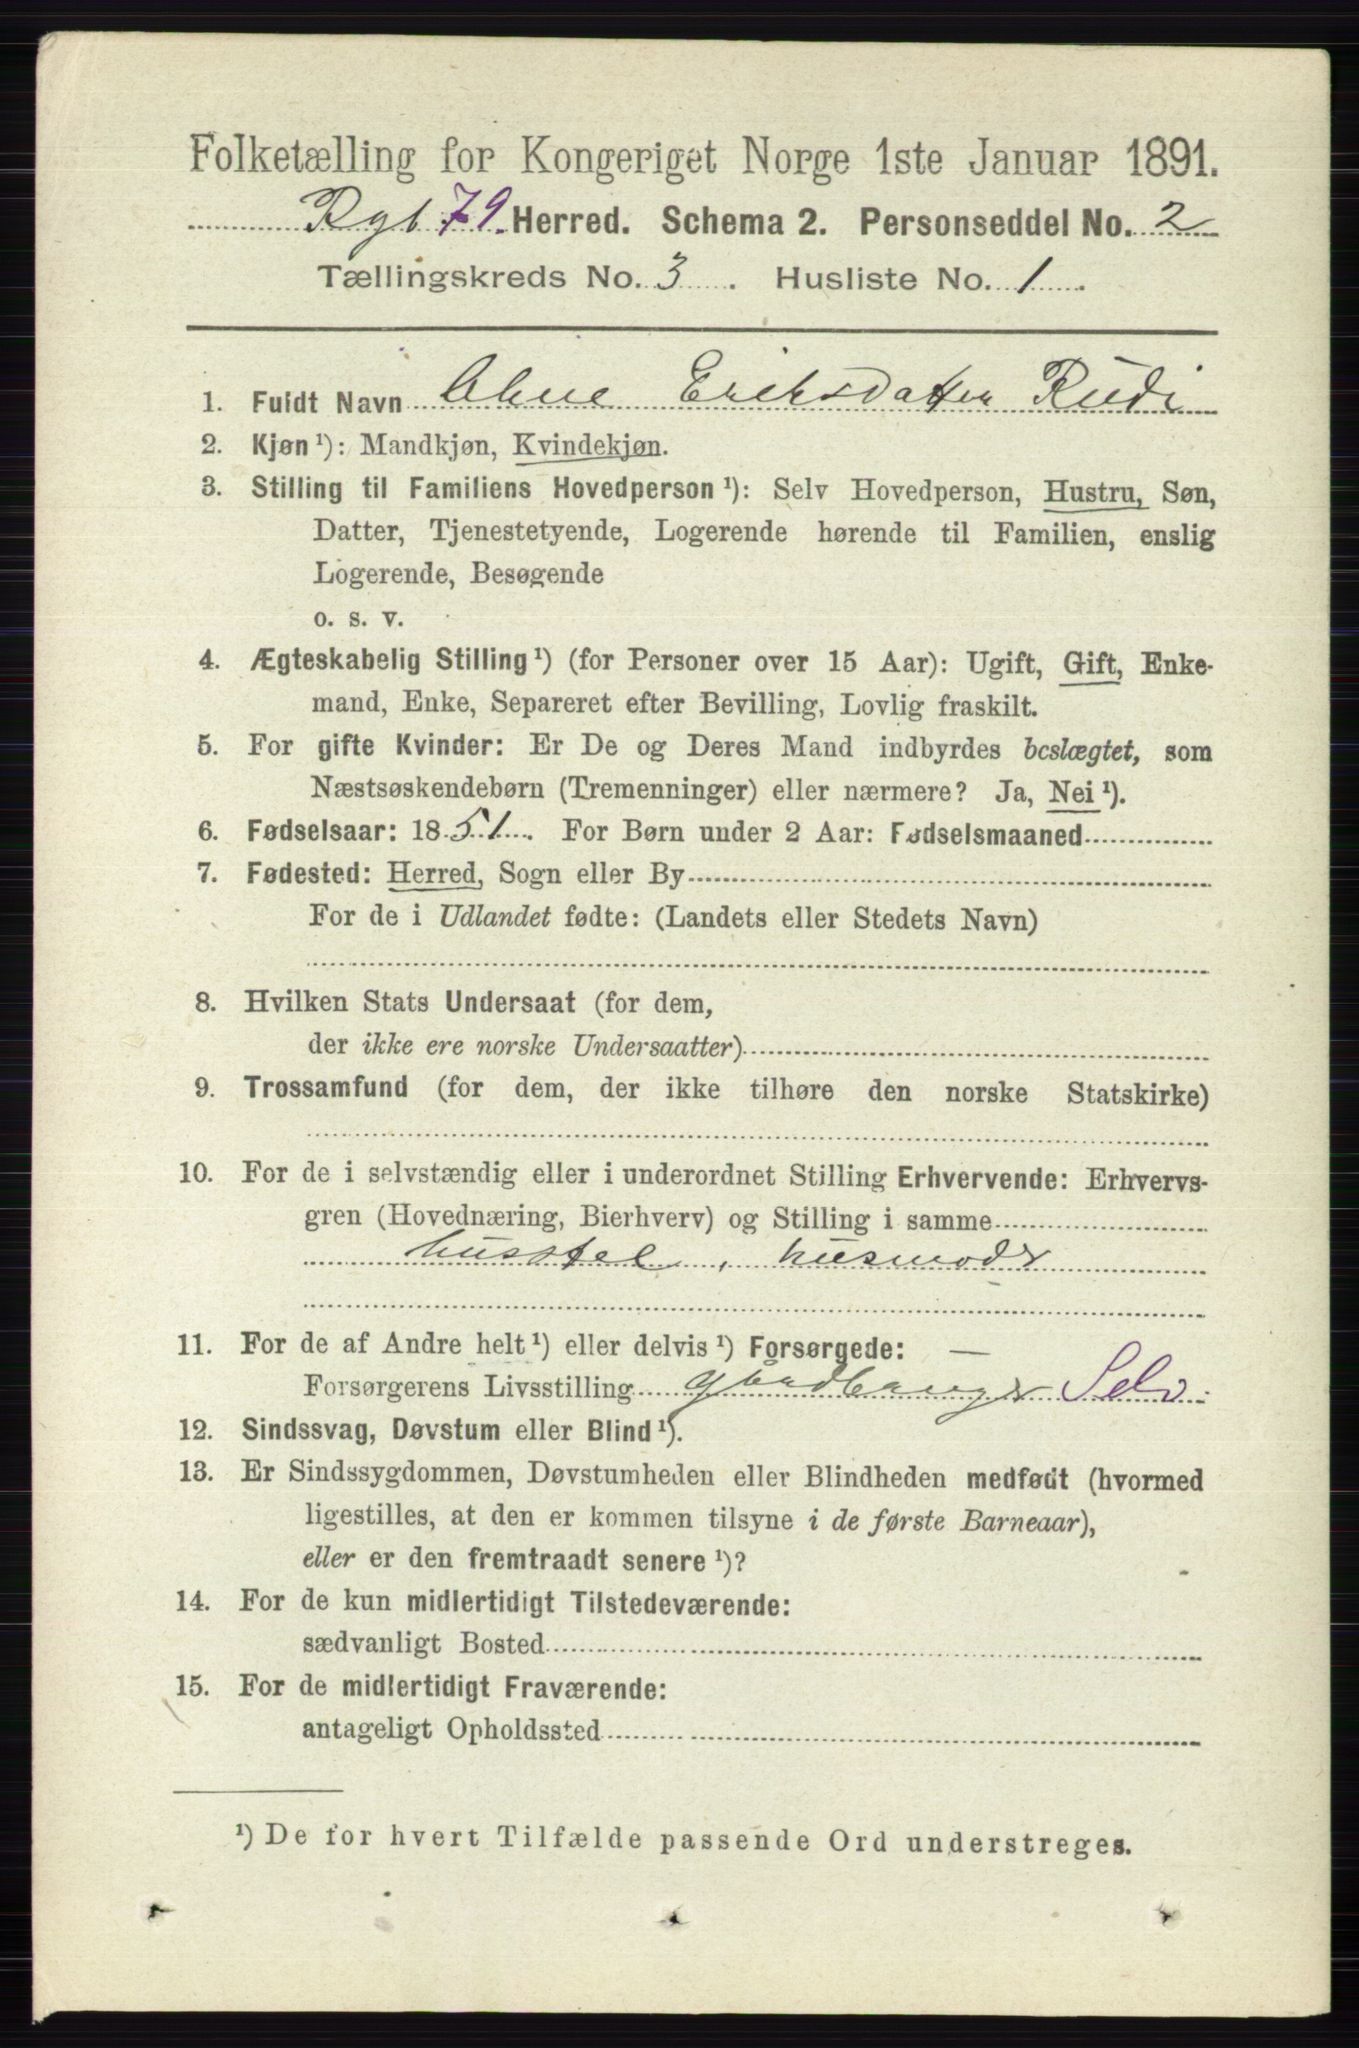 Folketælling for Kongeriget Norge 1ste Januar 1891.
Rgb 79 Herred. Schema 2. Personseddel No. 2
Tællingskreds No. 3. Husliste No. 1.
1. Fuldt Navn Eriksdatter Rudi
2. Kjøn ¹): Mandkjøn, Kvindekjøn.
3. Stilling til Familiens Hovedperson ¹): Selv Hovedperson, Hustru, Søn,
Datter, Tjenestetyende, Logerende hørende til Familien, enslig
Logerende, Besøgende
o. s. v.
4. Ægteskabelig Stilling ¹) (for Personer over 15 Aar): Ugift, Gift, Enke-
mand, Enke, Separeret efter Bevilling, Lovlig fraskilt.
5. For gifte Kvinder: Er De og Deres Mand indbyrdes beslægtet, som
Næstsøskendebørn (Tremenninger) eller nærmere? Ja, Nei ¹).
6. Fødselsaar: 1851. For Børn under 2 Aar: Fødselsmaaned
7. Fødested: Herred, Sogn eller By
For de i Udlandet fødte: (Landets eller Stedets Navn)
8. Hvilken Stats Undersaat (for dem,
der ikke ere norske Undersaatter)
9. Trossamfund (for dem, der ikke tilhøre den norske Statskirke)
10. For de i selvstændig eller i underordnet Stilling Erhvervende: Erhvervs-
gren (Hovednæring, Bierhverv) og Stilling i samme
husstel, husmoder
11. For de af Andre helt ¹) eller delvis ¹) Forsørgede: —
Forsørgerens Livsstilling Selv.
12. Sindssvag, Døvstum eller Blind ¹).
13. Er Sindssygdommen, Døvstumheden eller Blindheden medfødt (hvormed
ligestilles, at den er kommen tilsyne i de første Barneaar),
eller er den fremtraadt senere ¹)?
14. For de kun midlertidigt Tilstedeværende:
sædvanligt Bosted
15. For de midlertidigt Fraværende:
antageligt Opholdssted
¹) De for hvert Tilfælde passende Ord understreges.